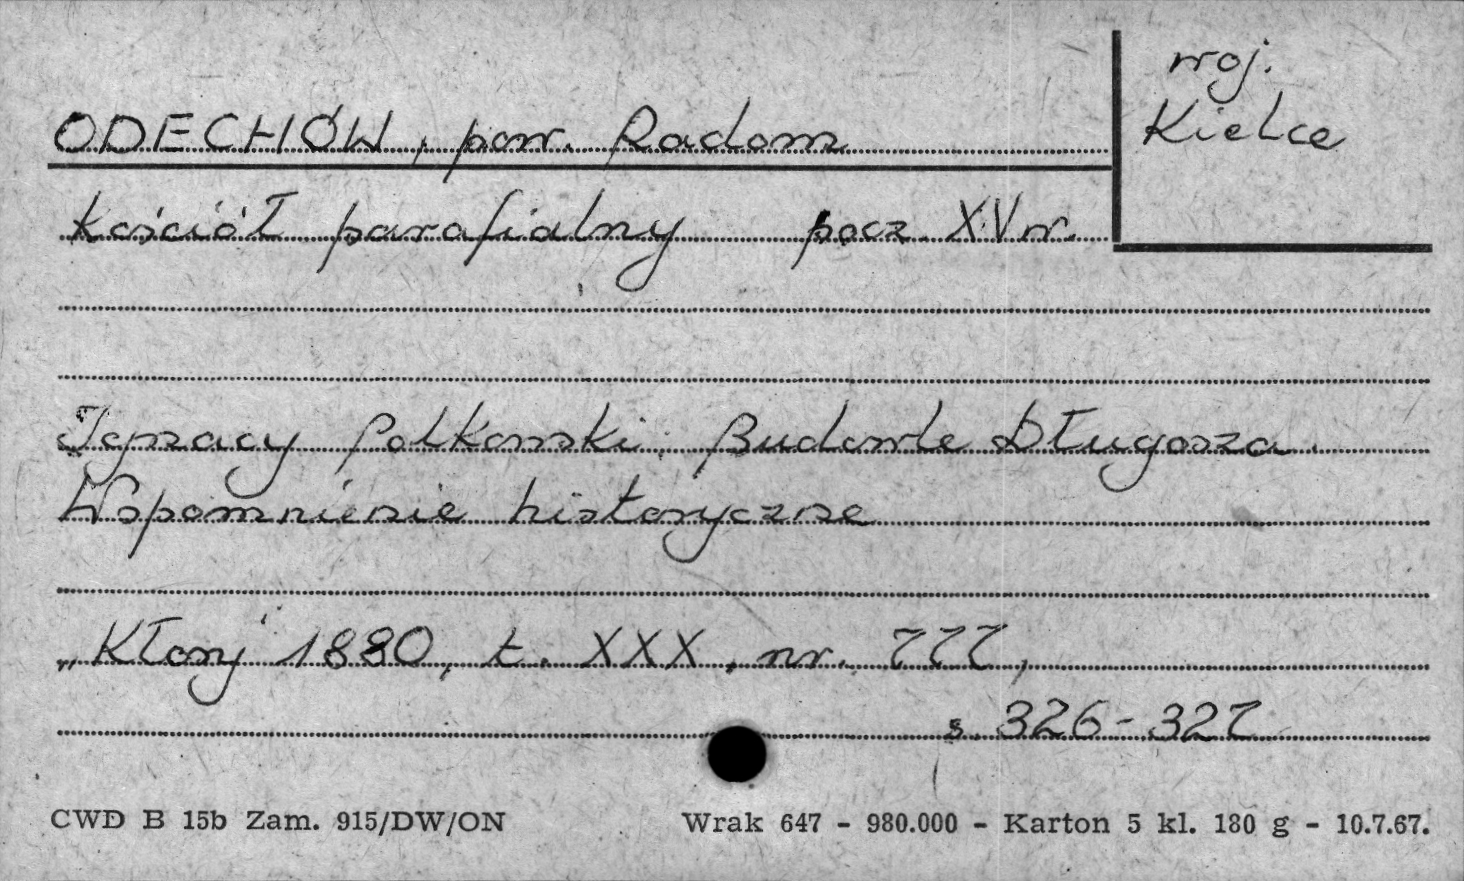 woj.
Kielce
ODECHÓW, pow. Radom
Kościół parafialny pocz. XV w.
Ignacy Polkowski: Budowle Długosza.
Wspomnienie historyczne
„Kłosy" 1880, t. XXX, nr. 777,
s. 326-327
CWD B 15b Zam. 915/DW/ON Wrak 647 - 980.000 - Karton 5 kl. 180 g - 10.7.67.